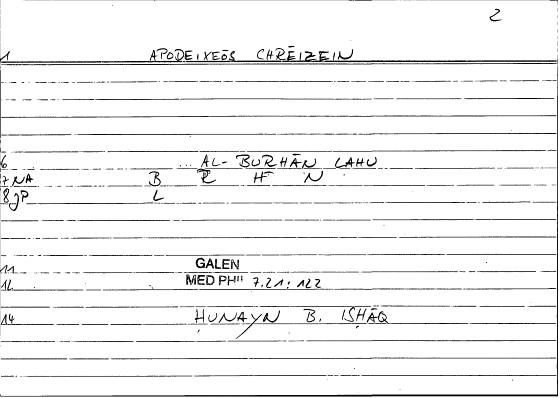 2
1 APODEIXEŌS CHRĒIZEIN
6 ... AL-BURHĀN LAHU
7 NA B R H N
8 JP L
11 GALEN
12 MED PH" 7.21: 122
14 ḤUNAYN B. ISḤĀQ